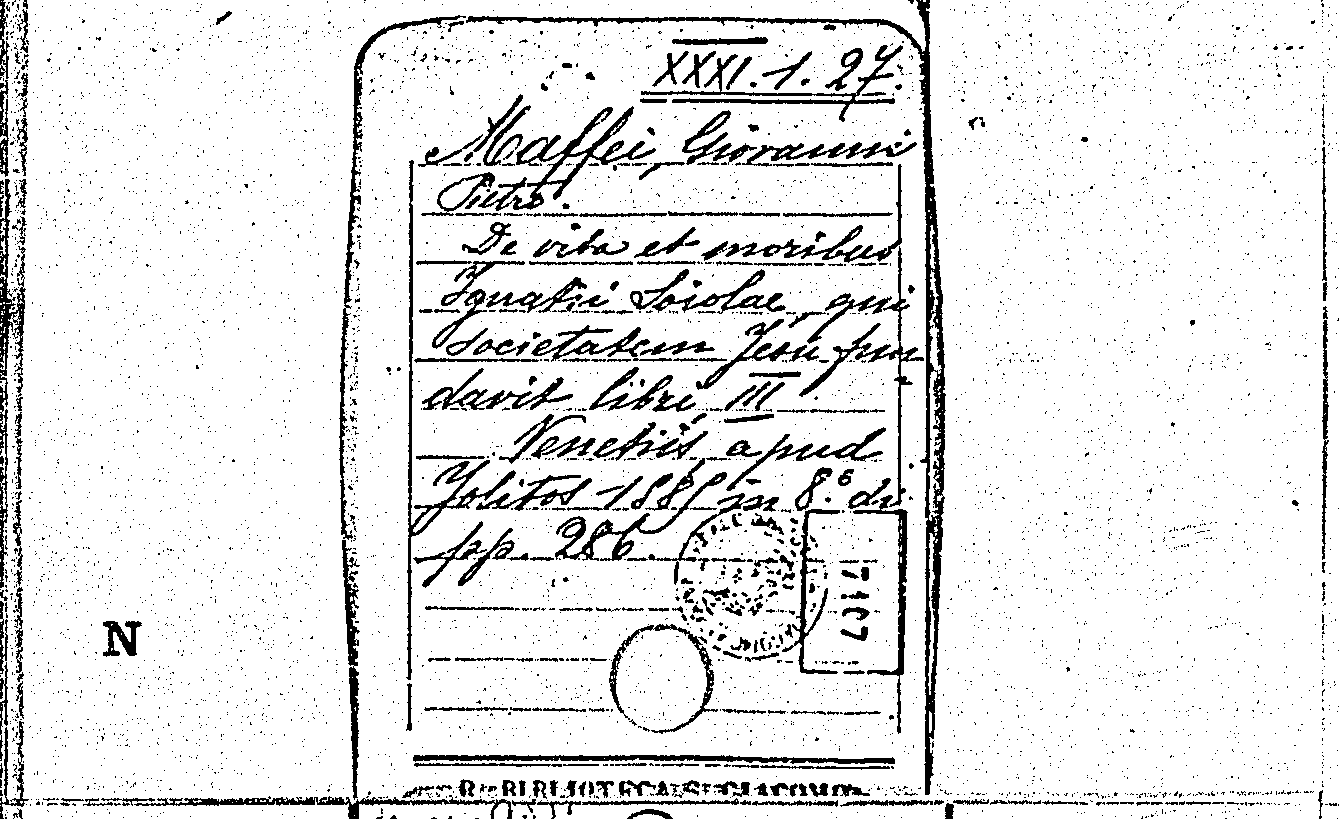 XXXI. 1. 27.
Maffei, Giovanni
Pietro.
De vita et moribus
Ignatii Loiolae, qui
societatem Jesu fun
davit libri III
Venetiis apud
Jolitos 1885 in 8.º di
pp. 286.
7107
N
R. BIBLIOTECA S. GIACOMO